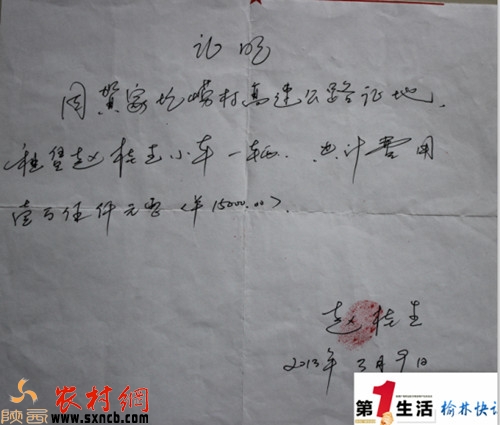 证明
因贺家圪崂村高速公路证地.
租赁赵桂生小车一辆. 共计费用
壹万伍仟元整 (¥15000.00).
赵桂生
2013年3月9日
陕西农村網
www.sxncb.com
第1生活 榆林快讯